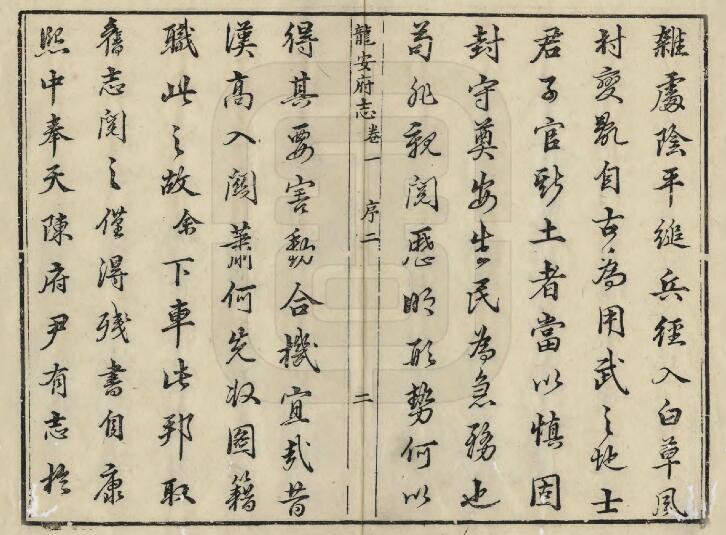 雜處陰平縋兵徑入白草風
村變氛自古為用武之地士
君子官斯土者當以慎固
封守奠安生民為急務也
苟非親閱歷明形勢何以
龍安府志 卷一 序二 二
得其要害動合機宜哉昔
漢高入關蕭何先收圖籍
職此之故余下車此邦取
舊志閱之僅得殘書自康
熙中奉天陳府尹有志於